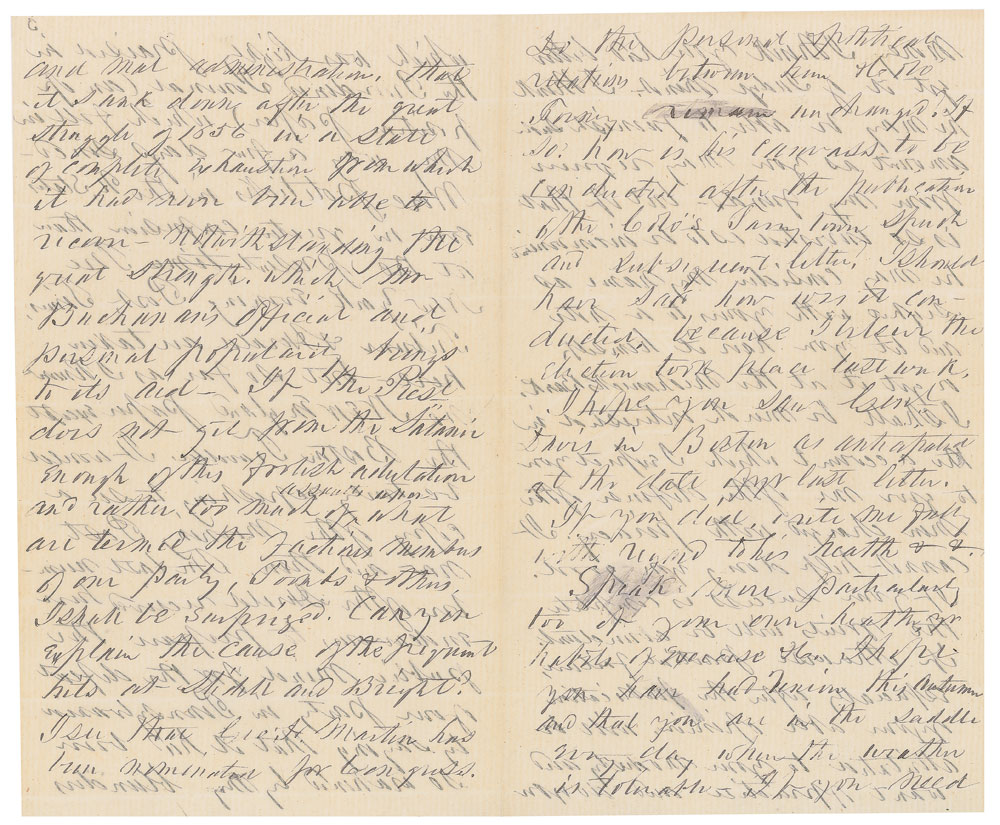 and mal administration, that
it sank down after the great
struggle of 1856 in a state
of complete exhaustion from which
it had never been able to
recover - Notwithstanding the
great strength which Mr
Buchanan's official and
personal popularity brings
to its aid - If the Prest
does not get from the Satanic
enough of this foolish adulation
and rather too much of what
assaults upon
are termed the factious members
of our party, Toombs & others
I shall be surprized. Can you
explain the cause of the frequent
hits at Slidell and Bright?
I see that Martin has
been nominated for Congress.
Do the personal & political
relations between him & Colo
Forney remain unchanged? If
so how is his canvass to be
conducted after the publication
of the Colo's Tarrytown speech
and subsequent letter, I should
have said how was it con-
ducted, because I believe the
election took place last week.
I hope you saw Genl
Davis in Boston as anticipated
at the date of yr last letter.
If you did, write me fully
with regard to his health & &.
Speak more particularly
too of your own health, yr
habits of exercise &c. I hope
you have had Union this autumn
and that you are in the saddle
every day when the weather
is tolerable. If you need